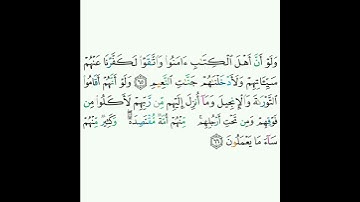 وَلَوْ أَنَّ أَهْلَ ٱلْكِتَٰبِ ءَامَنُوا۟ وَٱتَّقَوْا۟ لَكَفَّرْنَا عَنْهُمْ
سَيِّـَٔاتِهِمْ وَلَأَدْخَلْنَٰهُمْ جَنَّٰتِ ٱلنَّعِيمِ ٦٥ وَلَوْ أَنَّهُمْ أَقَامُوا۟
ٱلتَّوْرَىٰةَ وَٱلْإِنجِيلَ وَمَآ أُنزِلَ إِلَيْهِم مِّن رَّبِّهِمْ لَأَكَلُوا۟ مِن
فَوْقِهِمْ وَمِن تَحْتِ أَرْجُلِهِم ۚ مِّنْهُمْ أُمَّةٌ مُّقْتَصِدَةٌ ۖ وَكَثِيرٌ مِّنْهُمْ
سَآءَ مَا يَعْمَلُونَ ٦٦